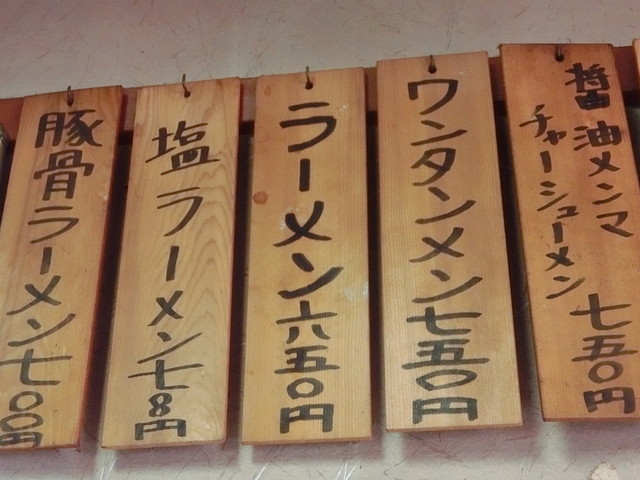 醤油メンマ
チャーシューメン 七五〇円
ワンタンメン七五〇円
ラーメン六五〇円
塩ラーメン七〇〇円
豚骨ラーメン七〇〇円